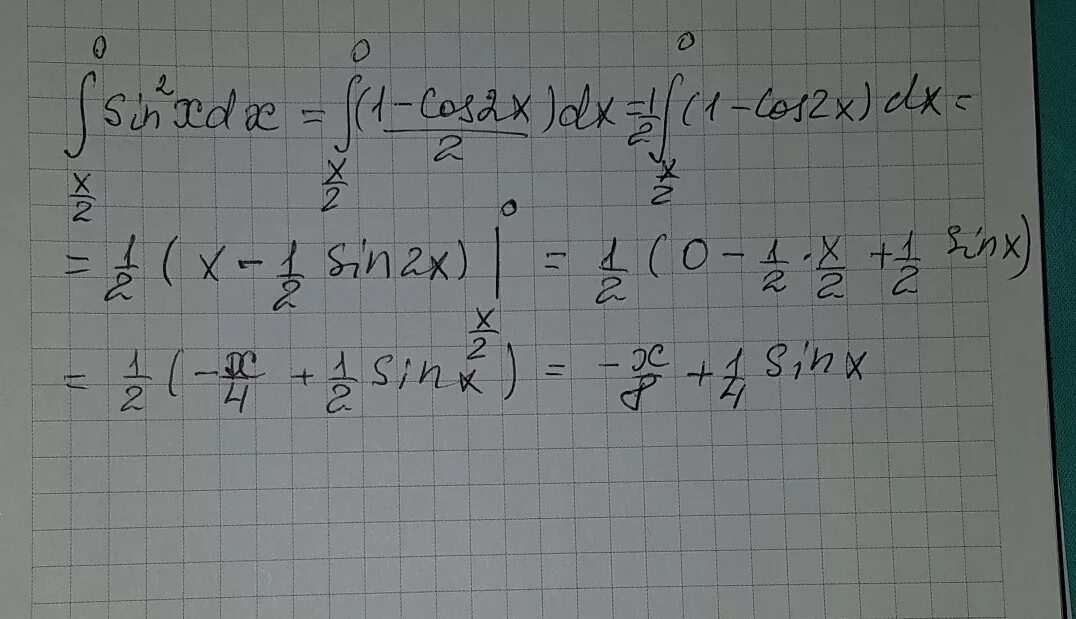 ∫_{x/2}^{0} sin²x dx = ∫_{x/2}^{0} ((1-cos2x)/2) dx = 1/2 ∫_{x/2}^{0} (1-cos2x) dx =
= 1/2 (x - 1/2 sin2x) |_{x/2}^{0} = 1/2 (0 - 1/2 · x/2 + 1/2 sinx)
= 1/2 (-x/4 + 1/2 sinx) = -x/8 + 1/4 sinx